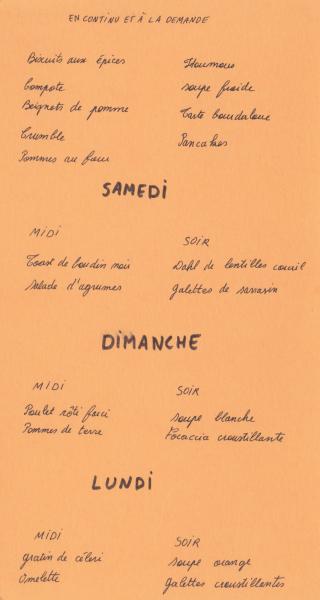 EN CONTINU ET À LA DEMANDE
Biscuits aux épices
Compote
Beignets de pomme
Crumble
Pommes au four
Houmous
soupe froide
Tarte bourdaloue
Pancakes
SAMEDI
MIDI
Toast de boudin noir
salade d'agrumes
SOIR
Dahl de lentilles corail
galettes de sarrasin
DIMANCHE
MIDI
Poulet rôti farci
Pommes de terre
SOIR
soupe blanche
Focaccia croustillante
LUNDI
MIDI
gratin de céleri
Omelette
SOIR
soupe orange
galettes croustillantes